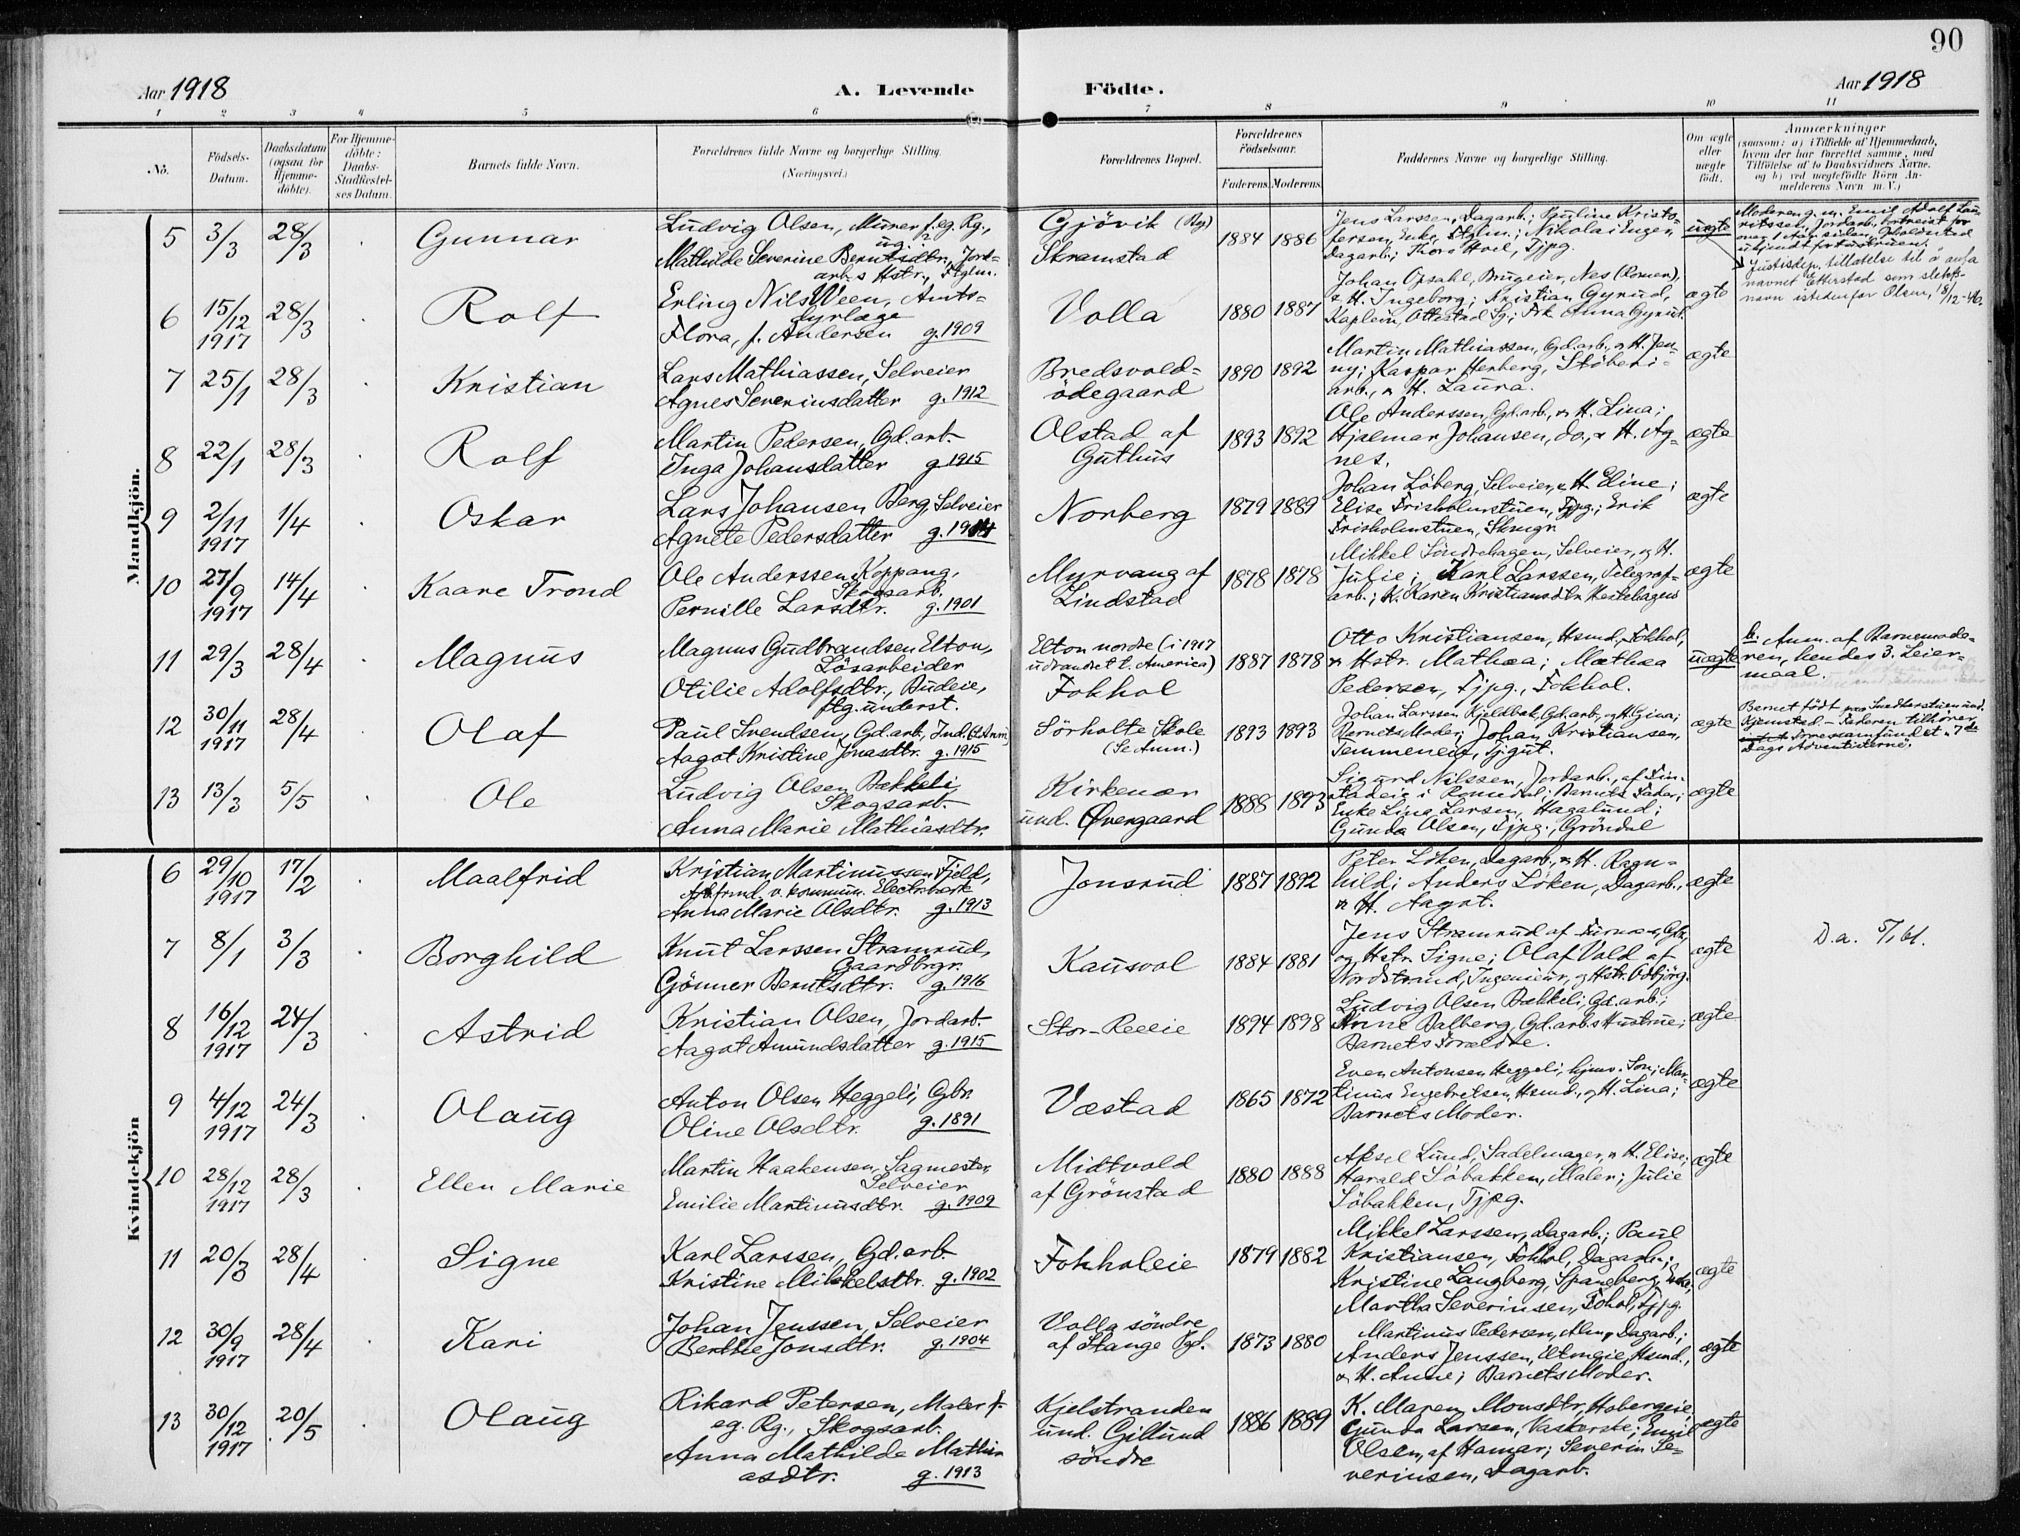 90
Aar 1918
A. Levende
Födte.
Aar 1918
1 2 3 4 5 6 7 8 9 10 11
No.
Födsels-
Datum.
Daabsdatum
(ogsaa for
Hjemme-
döbte).
For Hjemme-
döbte:
Daabs-
Stadfæstel-
ses Datum.
Barnets fulde Navn.
Forældrenes fulde Navne og borgerlige Stilling.
(Næringsvei.)
Forældrenes Bopæl.
Forældrenes
Födselsaar.
Faderens. Moderens.
Faddernes Navne og borgerlige Stilling.
Om ægte
eller
uægte
födt.
Anmærkninger
(saasom: a) i Tilfælde af Hjemmedaab,
hvem der har forrettet samme, med
Tilföielse af to Daabsvidners Navne,
og b) ved uægtefödte Börn An-
melderens Navn m. V.)
Mandkjön.
5 3/3 28/3 Gunnar
Ludvig Olsen, Murer f. eg. Rg.,
Mathilde Severine Berntsdtr., Jord-
arb.s Hstr., Ftglm.
Gjövik (By)
Skramstad
1884 1886
Jens Larssen, Dagarb.; Pauline Kristo-
fersen, Enke, Ftglm.; Nikolai Enger,
Dagarb.; Thora Hoel, Tjpg.
uægte
Moderen g. m. Emil Adolf Lau-
ritssen, Jordarb., bortreist for
over 1 Aar siden, Opholdssted
ubjendt
Justisdep. tillatelse til å anta
navnet Etterstad som slekts-
navn istedenfor Olsen, 18/12-46.
6 15/12 1917 28/3 Rolf
Erling Nils Ween, Amts-
dyrlæge
Flora, f. Andersen g. 1909
Volla
1880 1887
Johan Opsahl, Brugeier, Nes (Romer),
& H. Ingeborg; Kristian Gyrud,
Kaplein, Ottestad Sg.; Frk. Anna Gyrud.
ægte
7 25/1 28/3 Kristian
Lars Mathiassen, Selveier
Agnes Severinsdatter g. 1912
Bredsvold-
ödegaard
1890 1892
Martin Mathiassen, Gd.arb., & H. Jen-
ny; Kaspar Herberg, Stöberi-
arb., & H. Laura.
ægte
8 22/1 28/3 Rolf
Martin Pedersen, Gd.arb.
Inga Johansdatter g. 1915
Olstad af
Guthus
1893 1892
Ole Anderssen, Gd.arb., & H. Lina;
Hjalmar Johansen, do., & H. Ag-
nes.
ægte
9 2/11 1917 1/4 Oskar
Lars Johansen Berg, Selveier
Agnete Pedersdatter g. 1914
Norberg
1879 1889
Johan Löberg, Selveier, & H. Eline;
Elise Frisholmstuen, Tjpg.; Erik
Frisholmstuen, Skmgr.
ægte
10 27/9 1917 14/4 Kaare Trond
Ole Anderssen Koppang,
Skogsarb.
Pernille Larsdtr. g. 1901
Myrvang af
Lindstad
1878 1878
Mikkel Söndrehagen, Selveier, og H.
Julie; Karl Larssen, Telegraf-
arb.; K. Karen Kristiansdtr.
ægte
11 29/3 28/4 Magnus
Magnus Gudbrandsen Elton,
Lösarbeider
Otilie Adolfsdtr., Budeie,
ftg. underst.
Elton nordre (i 1917
udvandret t. America)
Fokhol
1887 1878
Otto Kristiansen, Hsmd., Fokhol,
& Hstr. Mathæa; Mathea
Pedersen, Tjpg., Fokhol.
uægte
b. Anm. af Barnemode-
ren, hendes 3. Leier-
maal.
12 30/11 1917 28/4 Olaf
Paul Svendsen, Gd.arb., Ind. (Se Anm.)
Aagot Kristine Jonasdtr. g. 1915
Sörholte Skole
(Se Anm.)
1893 1893
Johan Larssen Kjeldbak, Gd.arb., og H. Gina;
Barnets Moder; Johan Kristiansen,
Tjgut.
ægte
Barnet födt paa
Kjemstad. – Faderen tilhörer
Trossamfundet „7de
Dags Adventisterne".
13 13/3 5/5 Ole
Ludvig Olsen Bækkeli,
Skogsarb.
Anna Marie Mathiasdtr.
Kirkenær
und. Øvergaard
1888 1893
Sigurd Nilssen, Jordarb., af Fin-
stadeie i Romedal; Barnets Fader;
Enke Lina Larsen, Hagalund;
Gunda Olsen, Tjpg., Gröndal
ægte
Kvindekjön
6 29/10 1917 17/2 Maalfrid
Kristian Martinussen Fjeld,
Arb.frmd. v. kommun. Electr.værk
Anna Marie Olsdtr. g. 1913
Jonsrud
1887 1892
Peter Löken, Dagarb., & H. Ragn-
hild; Anders Löken, Dagarb.,
& H. Aagot.
ægte
7 8/1 3/3 Borghild
Knut Larssen Stramrud,
Gaardbrgr.
Gönner Berntsdtr. g. 1916
Kausvol
1884 1881
Jens Stramrud af
og Hstr. Signe; Olaf Vold af
Nordstrand, Ingeniör, og Hstr. Asbjörg.
ægte
D.a. 5/1 61.
8 16/12 1917 24/3 Astrid
Kristian Olsen, Jordarb.
Aagot Amundsdatter g. 1915
Stor-Reeeie
1894 1898
Ludvig Olsen Bækkeli, Gd.arb.;
Anne Dalberg, Gd.arb.s Hustrue;
Barnets Forældre.
ægte
9 4/12 1917 24/3 Olaug
Anton Olsen Heggeli, Gbr.
Oline Olsdtr. g. 1891
Væstad
1865 1872
Even Antonsen Heggeli, hjmv. Sön; Mar-
tinus Engebretsen, Hsmd., og H. Lina;
Barnets Moder.
ægte
10 28/12 1917 28/3 Ellen Marie
Martin Haakensen, Sagmester,
Selveier
Emilie Martinusdtr. g. 1909
Midtvold
af Grönstad
1880 1888
Aksel Lund, Sadelmager, & H. Elise;
Harald Söbakken, Maler; Julie
Söbakken, Tjpg.
ægte
11 20/3 28/4 Signe
Karl Larssen, Gd.arb.
Kristine Mikkelsdtr. g. 1902
Fokholeie
1879 1882
Mikkel Larssen, Dagarb.; Paul
Kristiansen, Fokhol, Dagarb.;
Kristine Langberg, Spangberg, Enke,
Martha Severinsen, Fohol, Tjpg.
ægte
12 30/9 1917 28/4 Kari
Johan Jenssen, Selveier
Berthe Jonsdtr. g. 1904
Volla söndre
af Stange Pgd.
1873 1880
Martinus Pedersen, Alm, Dagarb.;
Anders Jenssen, Hsmd.,
& H. Anne; Barnets Moder.
ægte
13 30/12 1917 20/5 Olaug
Rikard Petersen, Maler f.
eg. Rg., Skogsarb.
Anna Mathilde Mathi-
asdtr. g. 1913
Kjelstranden
und. Gillund
söndre
1886 1889
K. Maren Monsdtr., Hobergeie;
Gunda Larsen, Vaskerske; Emil
Olsen, af Hamar; Severin Se-
verinsen, Dagarb.
ægte